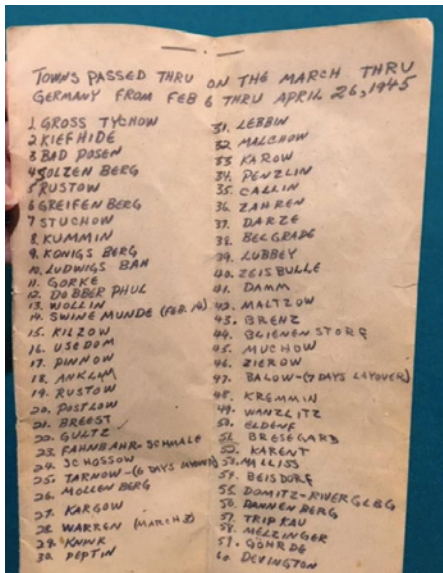 TOWNS PASSED THRU ON THE MARCH THRU
GERMANY FROM FEB 6 THRU APRIL 26, 1945
1. GROSS TYCHOW
2. KIEFHIDE
3. BAD POSEN
4. SOLZEN BERG
5. RUSTOW
6. GREIFEN BERG
7. STUCHOW
8. KUMMIN
9. KONIGS BERG
10. LUDWIGS BAH
11. GORKE
12. DOBBER PHUL
13. WOLLIN
14. SWINE MUNDE (FEB. 14)
15. KILZOW
16. USEDOM
17. PINNOW
18. ANKLAM
19. RUSTOW
20. POSTLOW
21. BREEST
22. GULTZ
23. FAHNBAHR-SCHMALE
24. SCHOSSOW
25. TARNOW-(6 DAYS LAYOVER)
26. MOLLEN BERG
27. KARGOW
28. WARREN (MARCH 3)
29. KNINK
30. PEPTIN
31. LEBBIN
32. MALCHOW
33. KAROW
34. PENZLIN
35. CALLIN
36. ZAHREN
37. DARZE
38. BELGRADE
39. LUBBEY
40. ZEISBULLE
41. DAMM
42. MALTZOW
43. BRENZ
44. BLIENENSTORF
45. MUCHOW
46. ZIEROW
47. BALOW-(7 DAYS LAYOVER)
48. KREMMIN
49. WANZLITZ
50. ELDENF
51. BRESEGARD
52. KARENT
53. MALLISS
54. BEISDORF
55. DOMITZ-RIVER ELBG
56. DANNEN BERG
57. TRIPKAU
58. MELZINGER
59. GÖHRDE
60. DEVINGTON